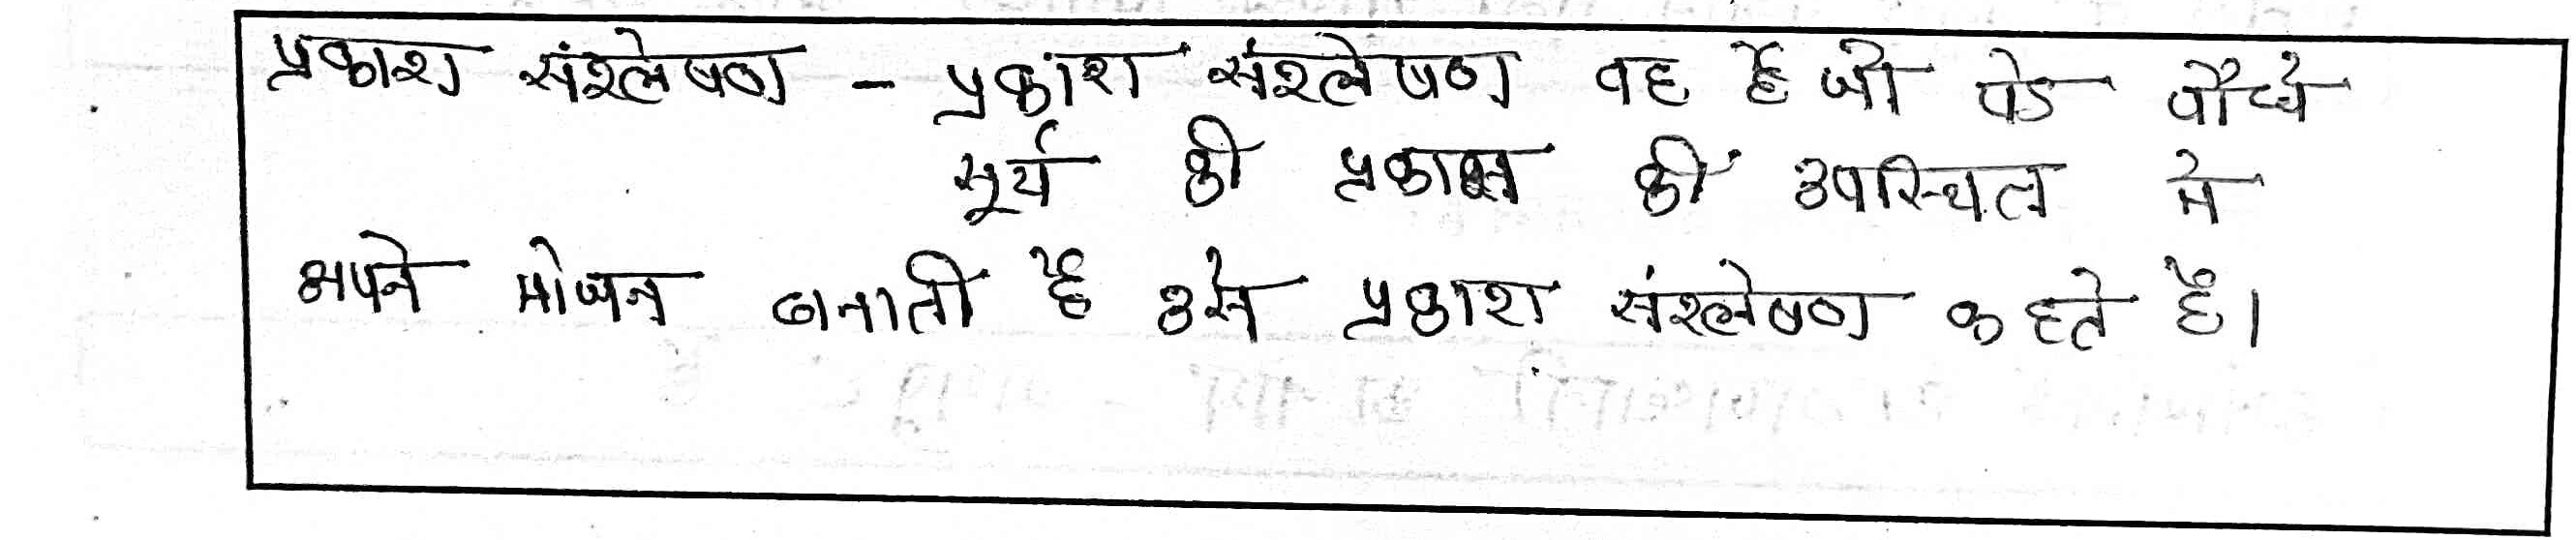 प्रकाश संश्लेषण - प्रकांश संश्लेषण वह है जो पेड पौधे
सूर्य की प्रकास की उपस्थित मे
अपने भोजन बनाती है उसे प्रकाश संश्लेषण कहते है।